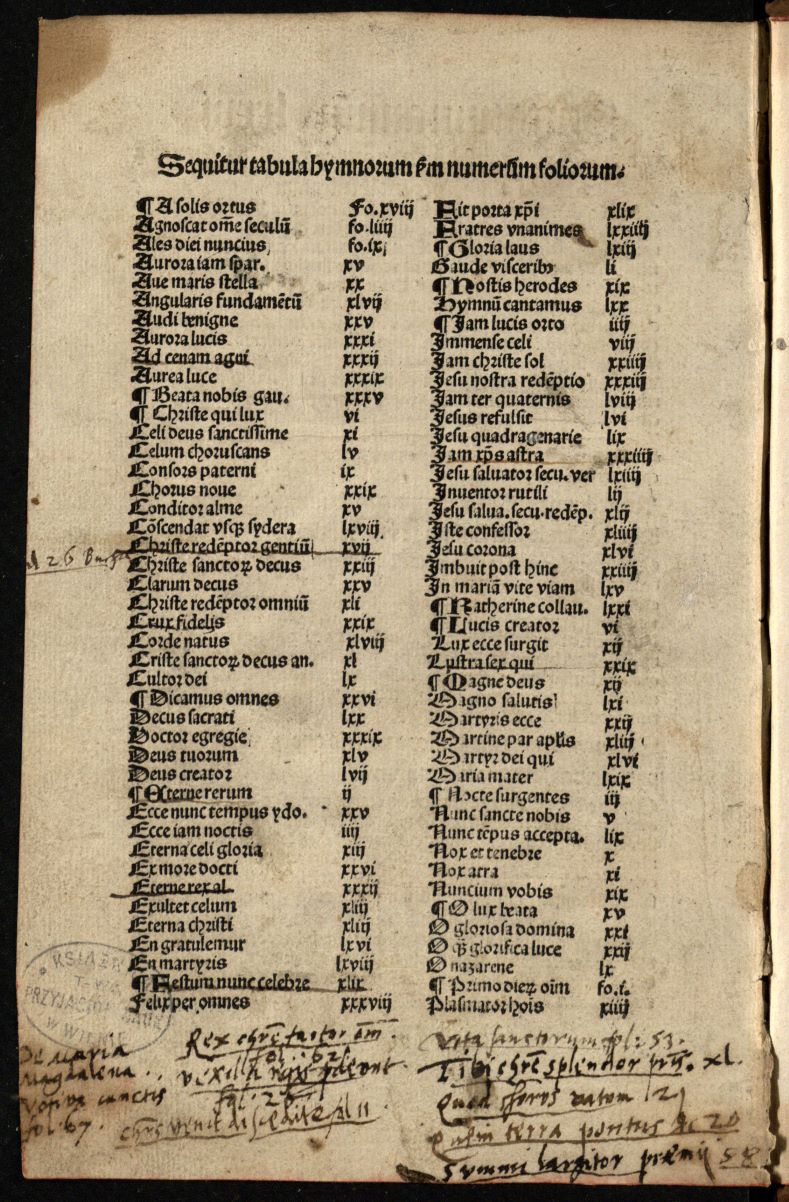 Sequitur tabula hymnorum ẜm numerũm foliorum.
¶ A solis ortus fo.xviij
Agnoscat om̃e seculũ fo.liiij
Ales diei nuncius fo.ix
Aurora iam spar. xv
Aue maris stella xx
Angularis fundamẽtũ xlvij
Audi benigne xxv
Aurora lucis xxxi
Ad cenam agni xxxij
Aurea luce xxxix
¶ Beata nobis gau. xxxv
¶ Christe qui lux vi
Celi deus sanctissime xi
Celum choruscans lv
Consors paterni ix
Chorus noue xxix
Conditor alme xv
Cõscendat vsqꝫ sydera lxviij
Christe redẽptor gentiũ xvij
Christe sanctoꝝ decus xxiij
Clarum decus xxv
Christe redẽptor omniũ xli
Crux fidelis xxix
Corde natus xlviij
Criste sanctoꝝ decus an. xl
Cultor dei lx
¶ Dicamus omnes xxvi
Decus sacrati lxx
Doctor egregie xxxix
Deus tuorum xlv
Deus creator lvij
¶ Eterne rerum ij
Ecce nunc tempus ydo. xxv
Ecce iam noctis iiij
Eterna celi gloria xiij
Ex more docti xxvi
Eterne rex al. xxxij
Exultet celum xliij
Eterna christi xliij
En gratulemur lxvi
En martyris lxviij
¶ Festum nunc celebre xlix
Felix per omnes xxxviij
Fit porta xp̃i xlix
Fratres vnanimes lxxiiij
¶ Gloria laus lxiij
Gaude visceribꝰ li
¶ Hostis herodes xix
Hymnũ cantamus lxx
¶ Jam lucis orto iiij
Jmmense celi viij
Jam christe sol xxiiij
Jesu nostra redẽptio xxxiij
Jam ter quaternis lviij
Jesus refulsit lvi
Jesu quadragenarie lix
Jam xp̃s astra xxxiiij
Jesu saluator secu. ver lxiiij
Jnuentor rutili lij
Jesu salua. secu. redẽp. xlij
Jste confessor xliiij
Jesu corona xlvi
Jmbuit post hinc xxiiij
Jn mariã vite viam lxv
¶ Katherine collau. lxxi
¶ Lucis creator vi
Lux ecce surgit xij
Lustra sex qui xxix
¶ Magne deus xij
Magno salutis lxi
Martyris ecce xxij
Martine par apl̃is xliij
Martyr dei qui xlvi
Maria mater lxix
¶ Nocte surgentes iij
Nunc sancte nobis v
Nunc tẽpus accepta. lix
Nox et tenebre x
Nox atra xi
Nuncium vobis xix
¶ O lux beata xv
O gloriosa domina xxi
O qͣ glorifica luce xxij
O nazarene lx
¶ Primo dieꝝ oĩm fo.i.
Plasmator hoĩs xiiij
De maria
Magdalena
Votiva cunctis
fol: 67.
Rex chrẽ factor om̃
fol: 62
vexilla regis prodeunt
fol: 28
chrs venit discedite fl 11
Vita sanctorum fol: 53.
Tibi chrẽ splendor pr̃is. xl.
Quod chorus vatum 21
Quem terra pontus &c 20
Summi largitor præmij 58